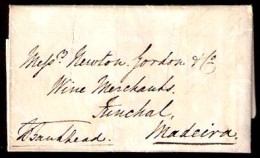 Messrs Newton Gordon & Co
Wine Merchants
Funchal,
Madeira.